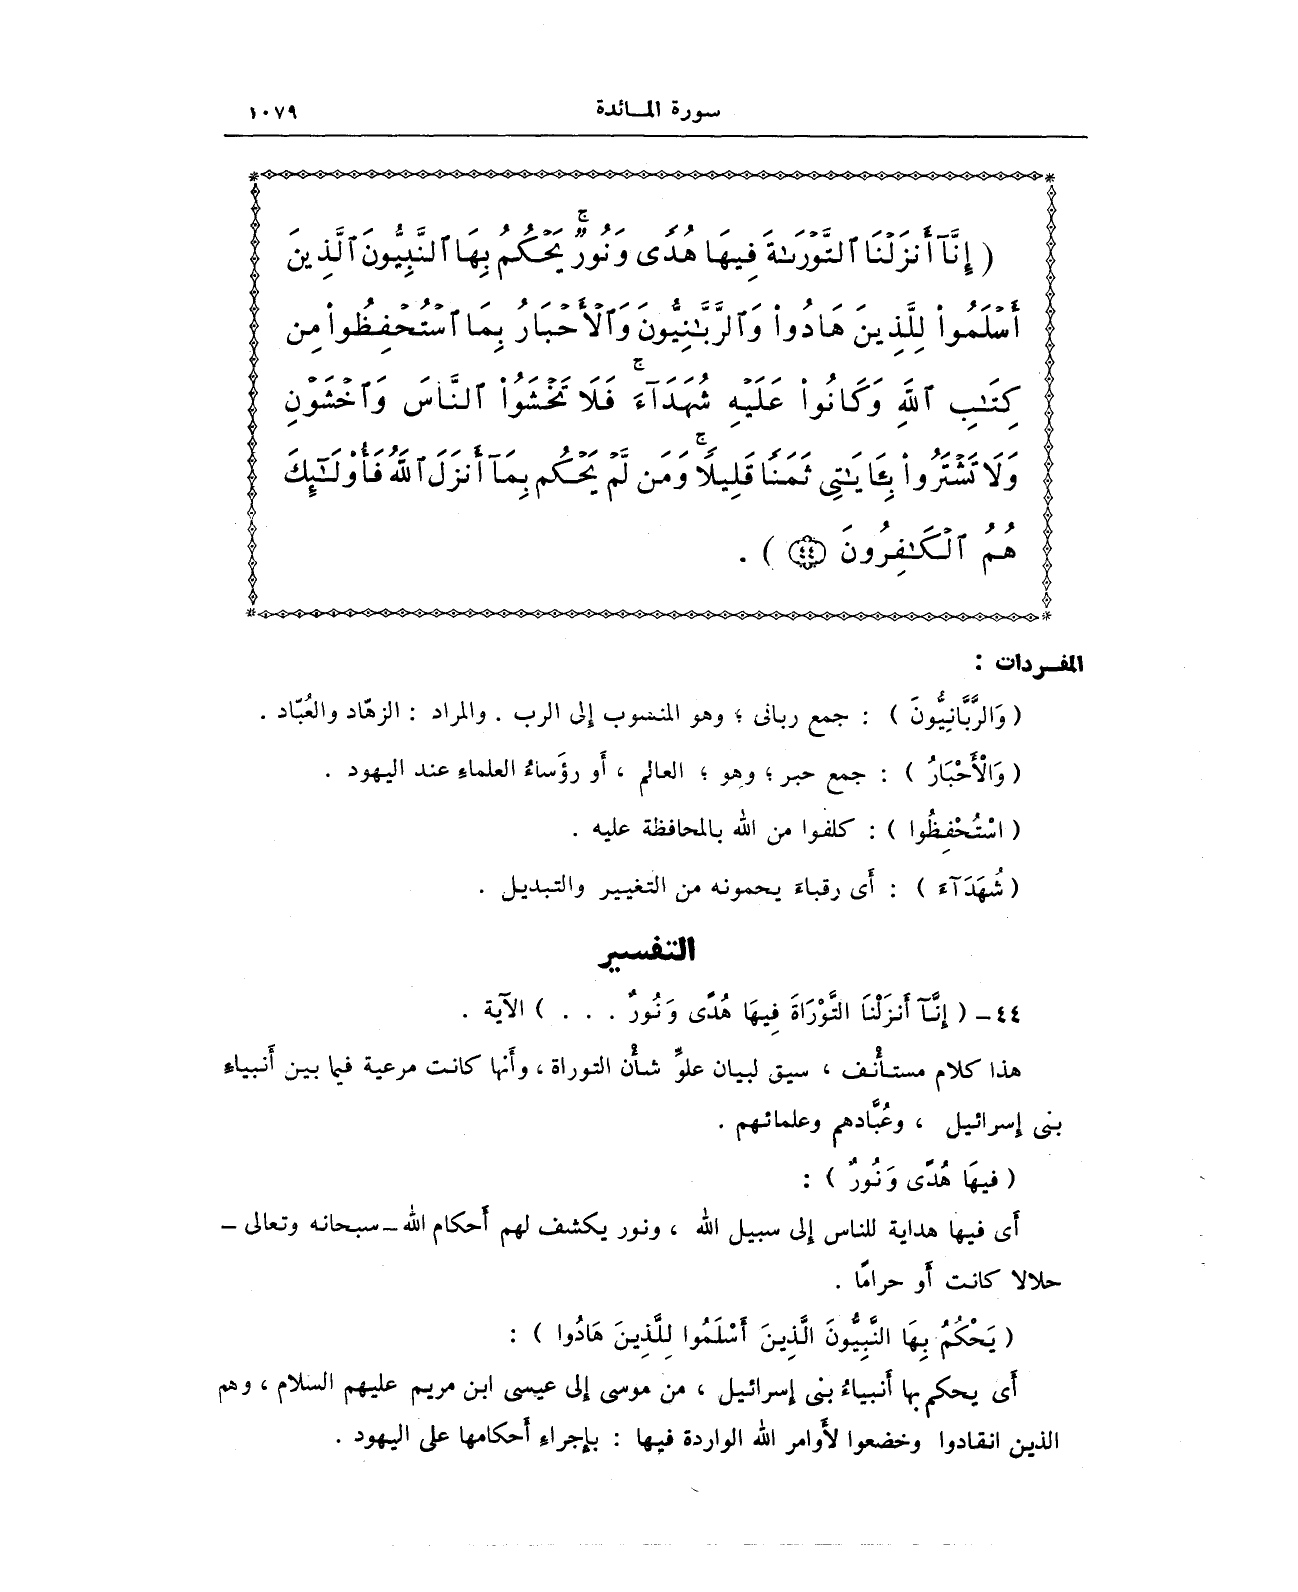 سورة المائدة ١٠٧٩
( إِنَّآ أَنزَلْنَا ٱلتَّوْرَىٰةَ فِيهَا هُدًى وَنُورٌ ۚ يَحْكُمُ بِهَا ٱلنَّبِيُّونَ ٱلَّذِينَ
أَسْلَمُوا۟ لِلَّذِينَ هَادُوا۟ وَٱلرَّبَّٰنِيُّونَ وَٱلْأَحْبَارُ بِمَا ٱسْتُحْفِظُوا۟ مِن
كِتَٰبِ ٱللَّهِ وَكَانُوا۟ عَلَيْهِ شُهَدَآءَ ۚ فَلَا تَخْشَوُا۟ ٱلنَّاسَ وَٱخْشَوْنِ
وَلَا تَشْتَرُوا۟ بِـَٔايَٰتِى ثَمَنًا قَلِيلًا ۚ وَمَن لَّمْ يَحْكُم بِمَآ أَنزَلَ ٱللَّهُ فَأُو۟لَٰٓئِكَ
هُمُ ٱلْكَٰفِرُونَ ٤٤ ) .
المفردات :
( وَالرَّبَّانِيُّونَ ) : جمع ربانى ؛ وهو المنسوب إلى الرب . والمراد : الزهّاد والعُبّاد .
( وَالْأَحْبَارُ ) : جمع حبر ؛ وهو ؛ العالم ، أو رؤَساءُ العلماءِ عند اليهود .
( اسْتُحْفِظُوا ) : كلفوا من الله بالمحافظة عليه .
( شُهَدَآءَ ) : أَى رقباءَ يحمونه من التغيير والتبديل .
التفسير
٤٤ – ( إِنَّآ أَنزَلْنَا التَّوْرَاةَ فِيهَا هُدًى وَنُورٌ . . . ) الآية .
هذا كلام مستأْنف ، سيق لبيان علوِّ شأْن التوراة ، وأَنها كانت مرعية فيما بين أَنبياءِ
بنى إسرائيل ، وعُبَّادهم وعلمائهم .
( فِيهَا هُدًى وَنُورٌ ) :
أَى فيها هداية للناس إلى سبيل الله ، ونور يكشف لهم أَحكام الله – سبحانه وتعالى –
حلالا كانت أَو حرامًا .
( يَحْكُمُ بِهَا النَّبِيُّونَ الَّذِينَ أَسْلَمُوا لِلَّذِينَ هَادُوا ) :
أَى يحكم بها أَنبياءُ بنى إسرائيل ، من موسى إلى عيسى ابن مريم عليهم السلام ، وهم
الذين انقادوا وخضعوا لأَوامر الله الواردة فيها : بإجراءِ أَحكامها على اليهود .